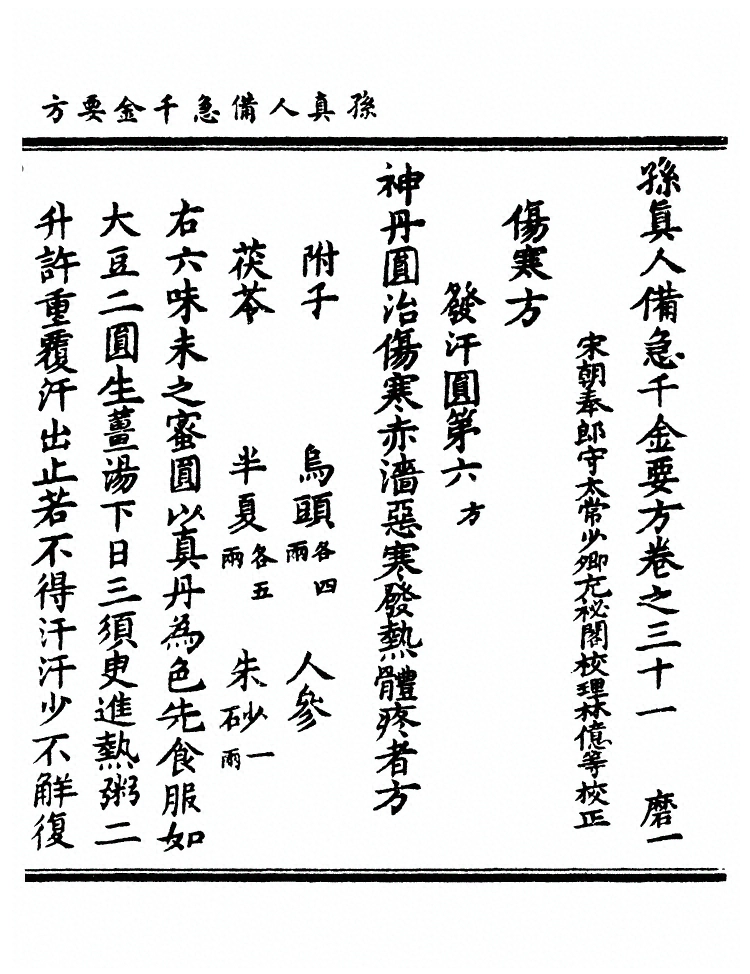 孫真人備急千金要方
孫真人備急千金要方卷之三十一　磨一
宋朝奉郎守太常少卿充祕閣校理林億等校正
傷寒方
發汗圓第六　方
神丹圓治傷寒赤濇惡寒發熱體疼者方
附子　烏頭各四兩　人參
茯苓　半夏各五兩　朱砂一兩
右六味末之蜜圓以真丹為色先食服如
大豆二圓生薑湯下日三須臾進熱粥二
升許重覆汗出止若不得汗汗少不解復